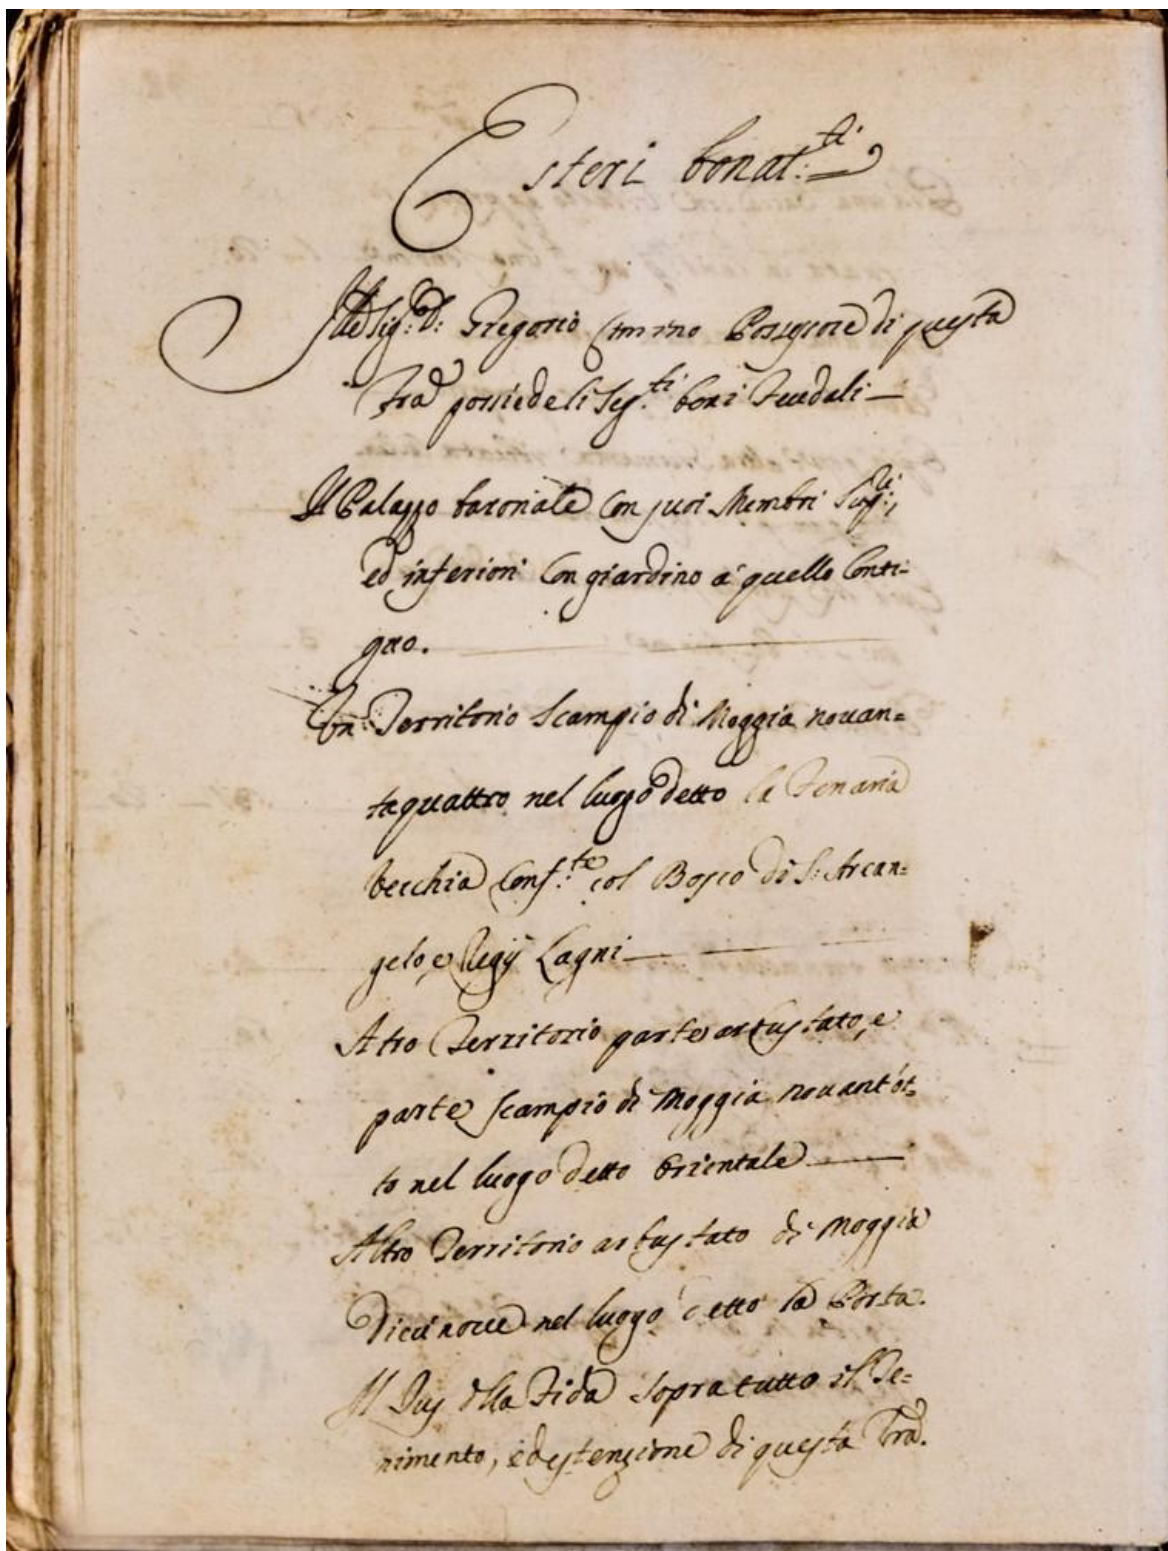 Esteri bonat:ti
Ill.e Sig: D: Gregorio Cimino Possessore di questa
Tra possiede li seg:ti boni Feudali —
Il Palazzo baronale Con suoi Membri Sup:ri,
ed inferiori Con giardino a' quello Conti=
guo.
Un Territorio Scampio di Moggia nouan=
taquattro nel luogo detto la
Vecchia Conf:te col Bosco di S: Arcan=
gelo, e Regij Lagni —
Atro Territorio parte arbustato, e
parte scampio di Moggia nouant'ot=
to nel luogo detto Orientale —
Altro Territorio arbustato di Moggia
Diecinoue nel luogo detto la Porta.
Il Jus della Fida sopra tutto il Te=
nimento, ed estenzione di questa Tra.